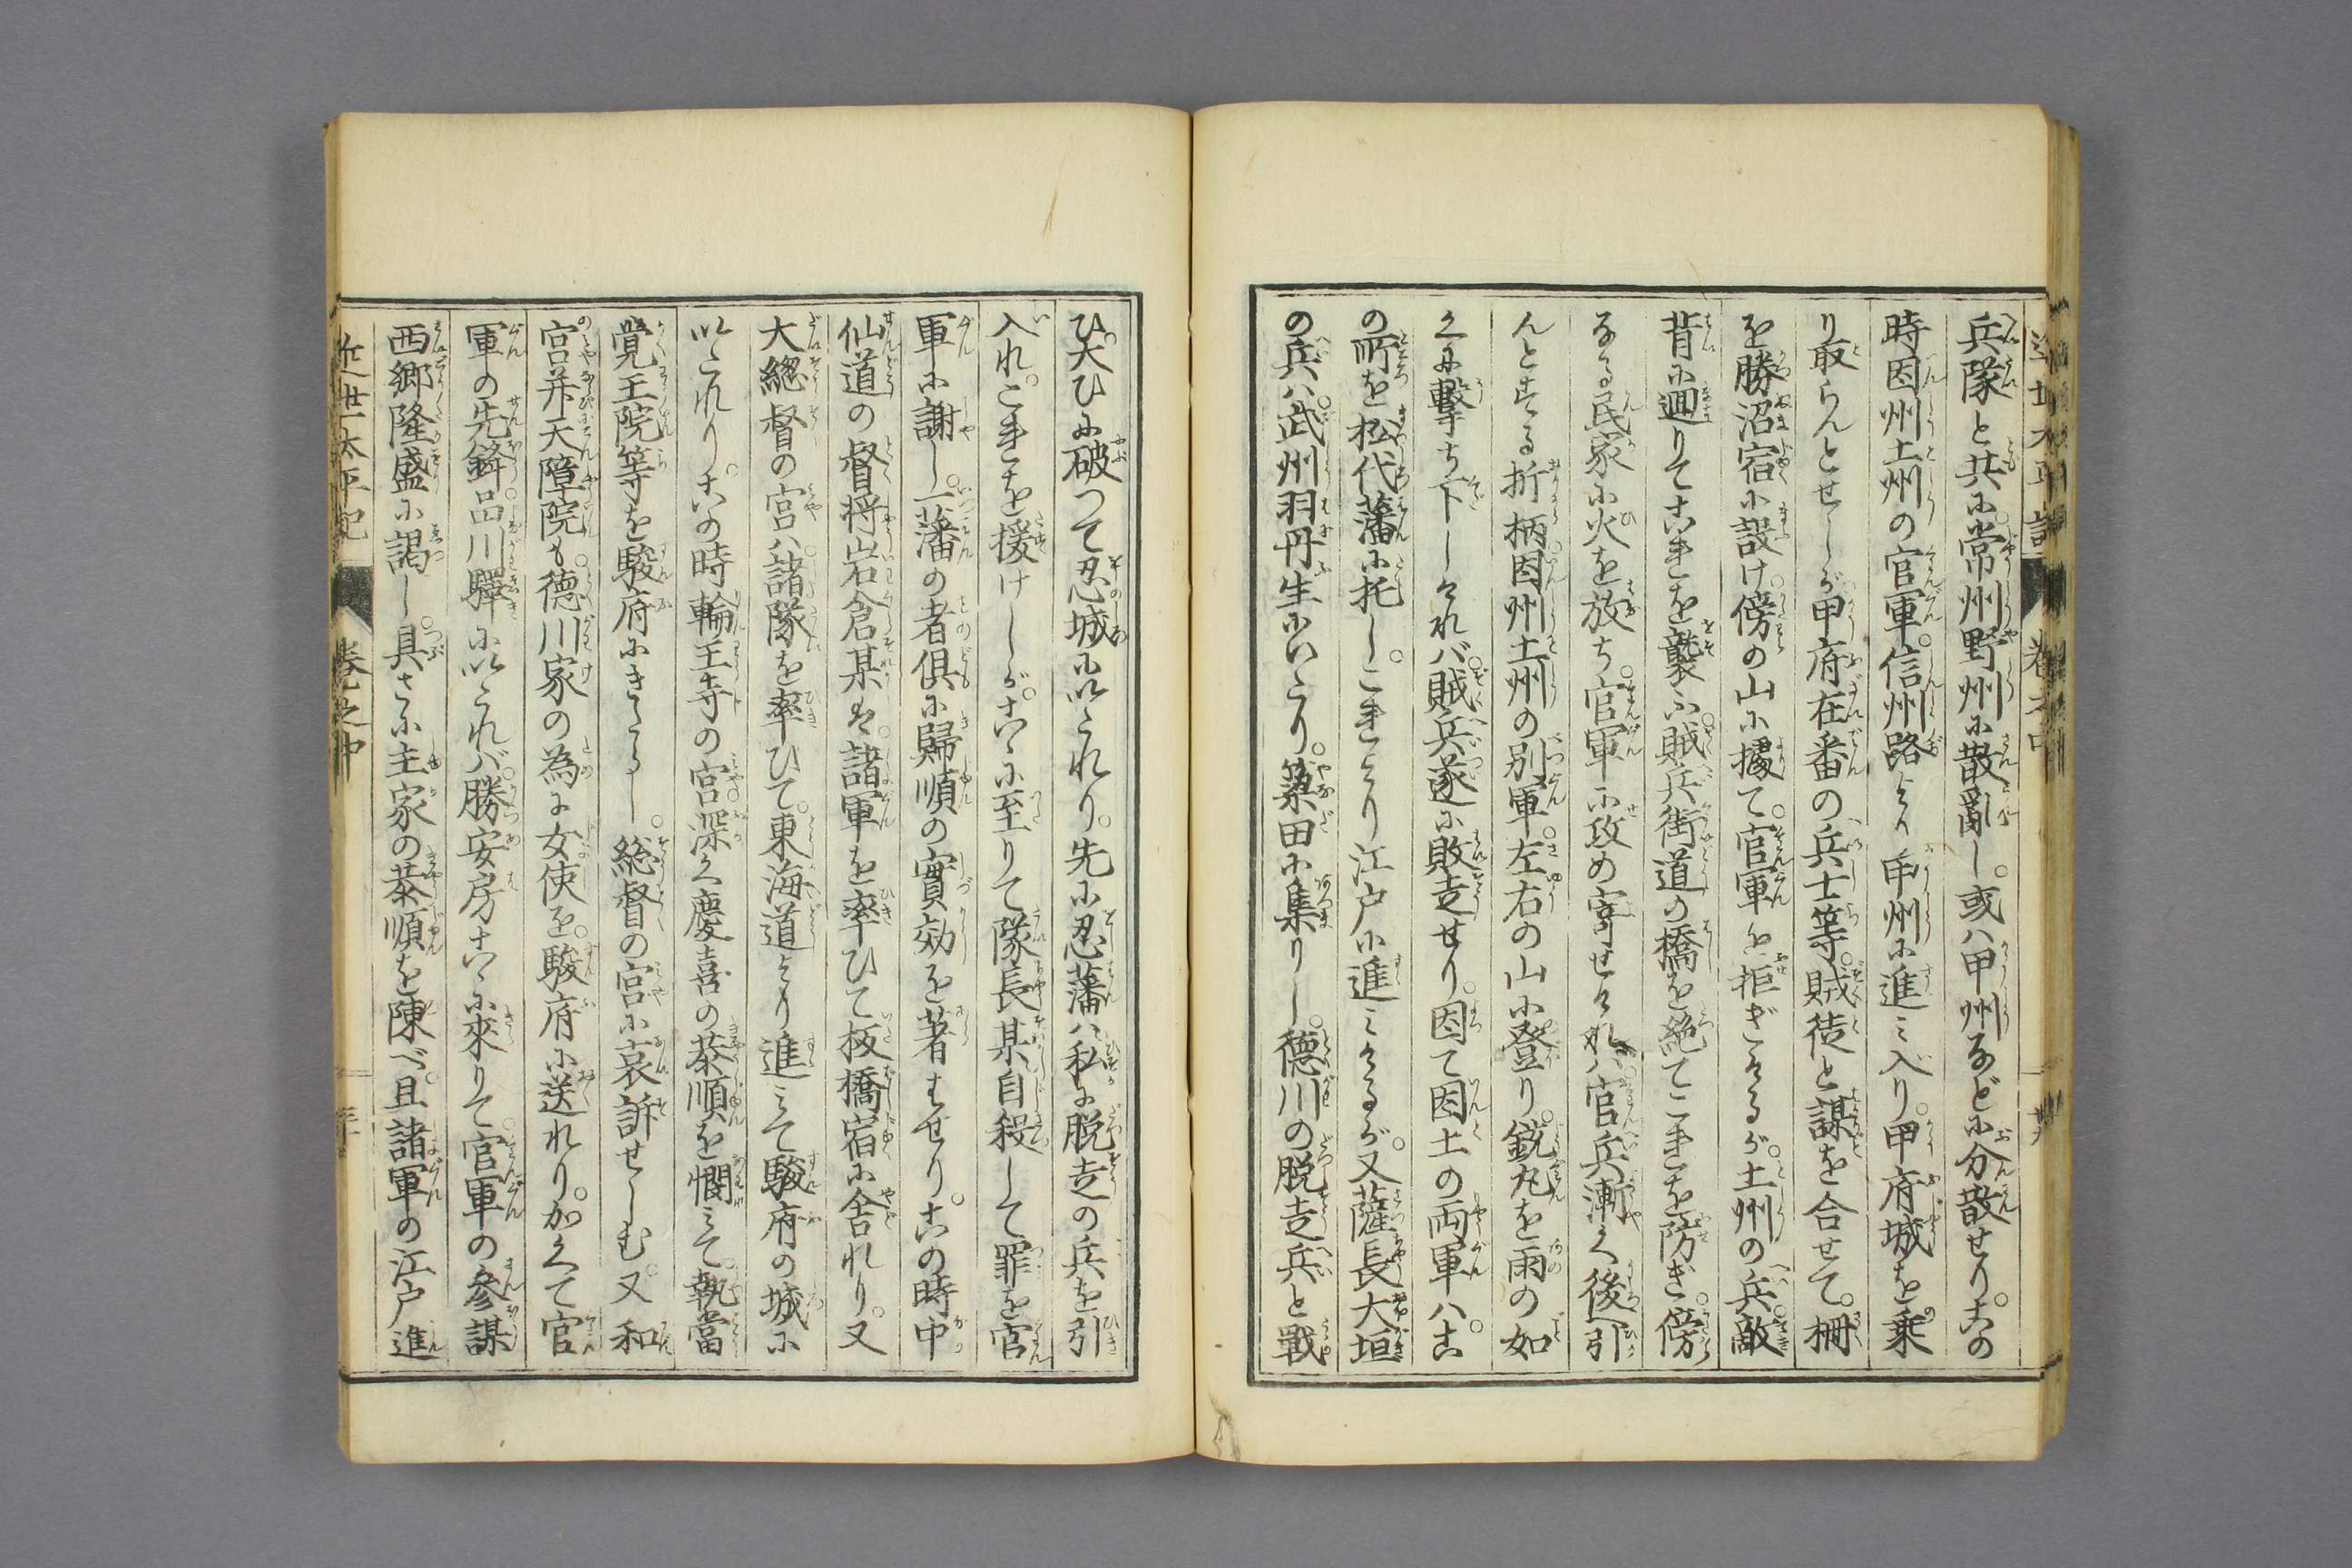 兵隊と共に。常州野州に散亂し。或ハ甲州などに分散せり。この
時因州土州の官軍。信州路より甲州に進ミ入り。甲府城を乗
り取らんとせしが。甲府在番の兵士等。賊徒と謀を合せて。柵
を勝沼宿に設け。傍の山に據て。官軍を拒ぎけるが。土州の兵。敵
背に廻りてこれを襲ふ。賊兵街道の橋を絶てこれを防ぎ。傍
なる民家に火を放ち。官軍に攻め寄せけれハ。官兵漸く後へ引
んとする折柄。因州土州の別軍。左右の山に登り。銃丸を雨の如
くに撃ち下しければ。賊兵遂に敗走せり。因て因土の両軍ハ。こ
の所を松代藩に托し。これより江戸に進ミけるが。又薩長大垣
の兵ハ。武州羽丹生にいたり。簗田に集りし。徳川の脱走兵と戰
ひ。大ひに破つて忍城にいたれり。先に忍藩ハ私に脱走の兵を引
入れ。これを援けしが。こゝに至りて隊長某自殺して罪を官
軍に謝し。一藩の者倶に歸順の實効を著はせり。この時中
仙道の督将岩倉某は。諸軍を率ひて板橋宿に舎れり。又
大總督の宮ハ。諸隊を率ひて。東海道より進ミて駿府の城に
いたれり。この時輪王寺の宮。深く慶喜の恭順を憫ミて。執當
覚王院等を駿府にきたらし。総督の宮に哀訴せしむ。又和
宮并天障院も。徳川家の為に女使を。駿府に送れり。かくて官
軍の先鋒。品川驛にいたれバ。勝安房こゝに來りて。官軍の參謀
西郷隆盛に謁し。具さに主家の恭順を陳べ。且諸軍の江戸進
近世太平記 巻之中